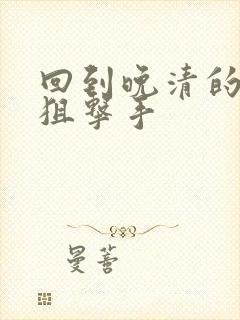 回到晚清的
狙擊手
曼薈